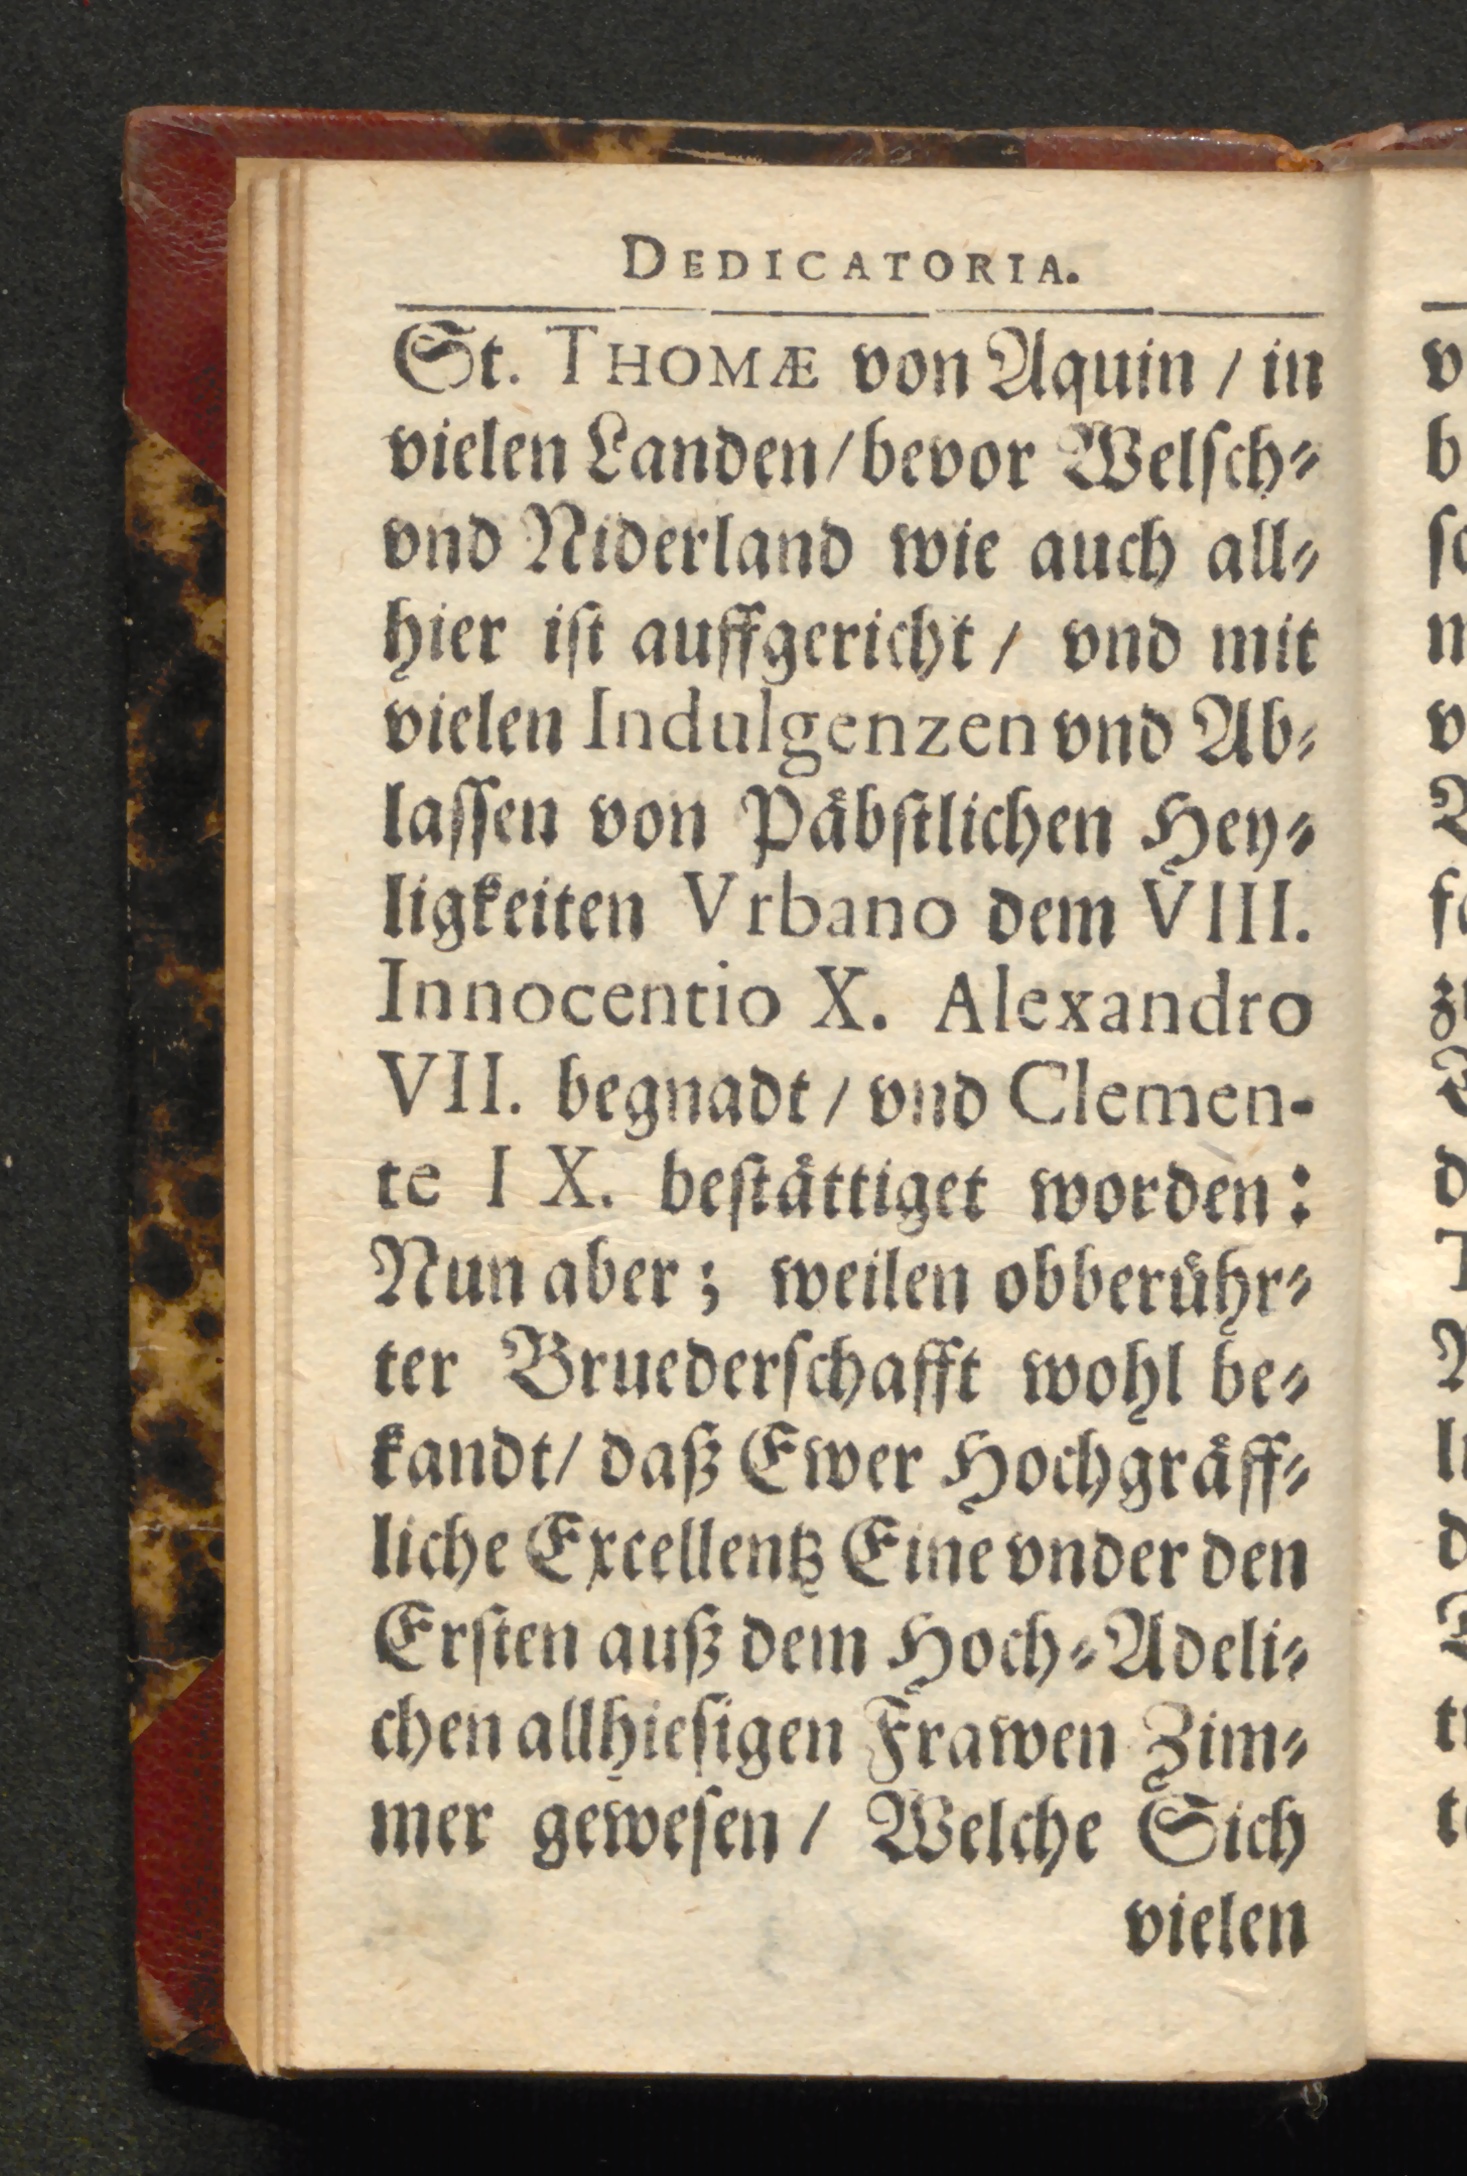 DEDICATORIA.
St. THOMÆ von Aquin / in
vielen Landen / bevor Welſch⸗
vnd Niderland wie auch all⸗
hier iſt auffgericht / vnd mit
vielen Indulgenzen vnd Ab⸗
laſſen von Paͤbſtlichen Hey⸗
ligkeiten Vrbano dem VIII.
Innocentio X. Alexandro
VII. begnadt / vnd Clemen-
te IX. beſtaͤttiget worden:
Nun aber; weilen obberuͤhr⸗
ter Bruederſchafft wohl be⸗
kandt / daß Ewer Hochgraͤff⸗
liche Excellentz Eine vnder den
Erſten auß dem Hoch⸗Adeli⸗
chen allhieſigen Frawen Zim⸗
mer geweſen / Welche Sich
vielen